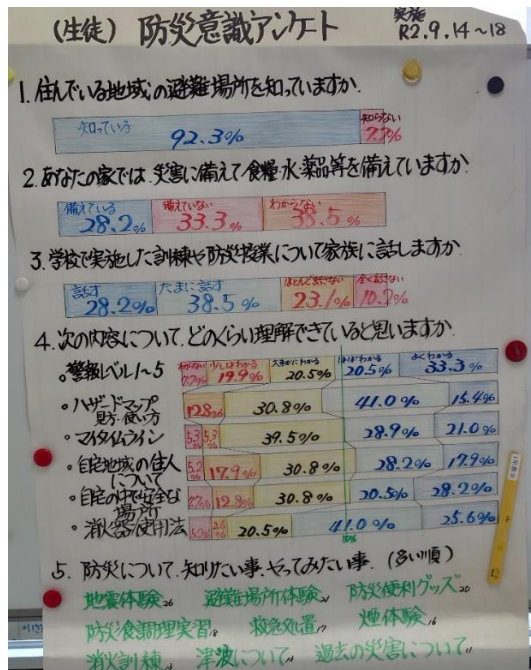 (生徒) 防災意識アンケート
実施
R2.9.14~18
1.住んでいる地域の避難場所を知っていますか.
知っている 92.3% 知らない 7.7%
2.あなたの家では、災害に備えて食糧・水・薬品等を備えていますか.
備えている 28.2% 備えていない 33.3% わからない 38.5%
3.学校で実施した訓練や防災授業について家族に話しますか.
話す 28.2% たまに話す 38.5% ほとんど話さない 23.1% 全く話さない
4.次の内容について、どのくらい理解できていると思いますか.
わからない 少しはわかる 大まかにわかる ほぼわかる よくわかる
。警戒レベル1~5 7.7% 19.9% 20.5% 20.5% 33.3%
・ハザードマップ 12.8% 30.8% 41.0% 15.4%
見方・使い方
・マイタイムライン 5.3% 5.3% 39.5% 28.9% 21.0%
・自宅地域の住人 17.9% 30.8% 28.2% 17.9%
について
・自宅の中で安全な 7.7% 12.8% 30.8% 20.5% 28.2%
場所
・消火器使用法 20.5% 41.0% 25.6%
5.防災について、知りたい事、やってみたい事. (多い順)
地震体験26 避難場所体験21 防災便利グッズ20
防災食調理実習18 救急処置17 煙体験16
消火訓練 津波について 過去の災害について